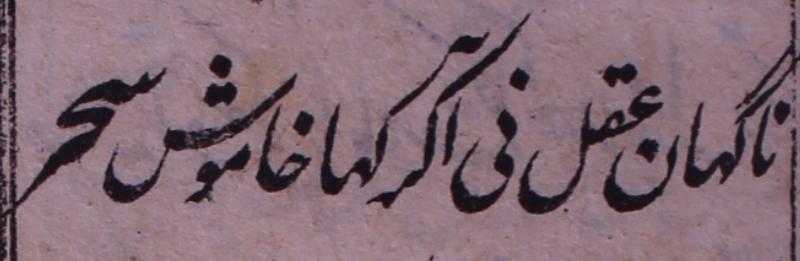 ناگہان عقل نی آکر کہا خاموش سحر